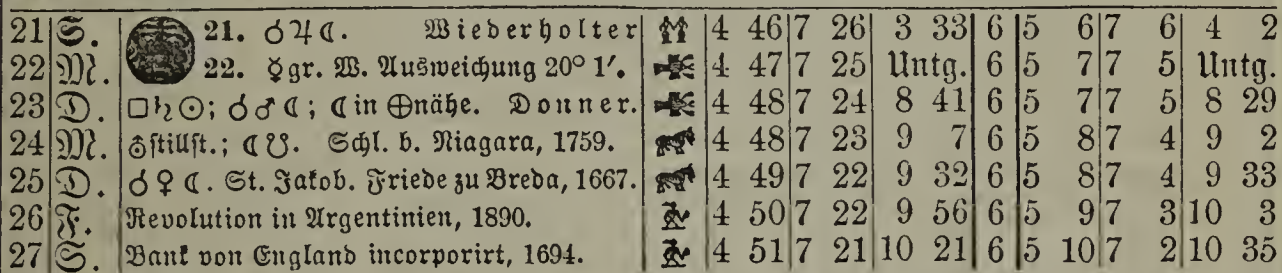 21 S. 21. ☌♃☾. Wiederholter 4 46 7 26 3 33 6 5 6 7 6 4 2
22 M. 22. ☿gr. W. Ausweichung 20° 1′. 4 47 7 25 Untg. 6 5 7 7 5 Untg.
23 D. □♄☉; ☌♂☾; ☾in ⊕nähe. Donner. 4 48 7 24 8 41 6 5 7 7 5 8 29
24 M. ♁stillst.; ☾☋. Schl. b. Niagara, 1759. 4 48 7 23 9 7 6 5 8 7 4 9 2
25 D. ☌♀☾. St. Jakob. Friede zu Breda, 1667. 4 49 7 22 9 32 6 5 8 7 4 9 33
26 F. Revolution in Argentinien, 1890. 4 50 7 22 9 56 6 5 9 7 3 10 3
27 S. Bank von England incorporirt, 1694. 4 51 7 21 10 21 6 5 10 7 2 10 35